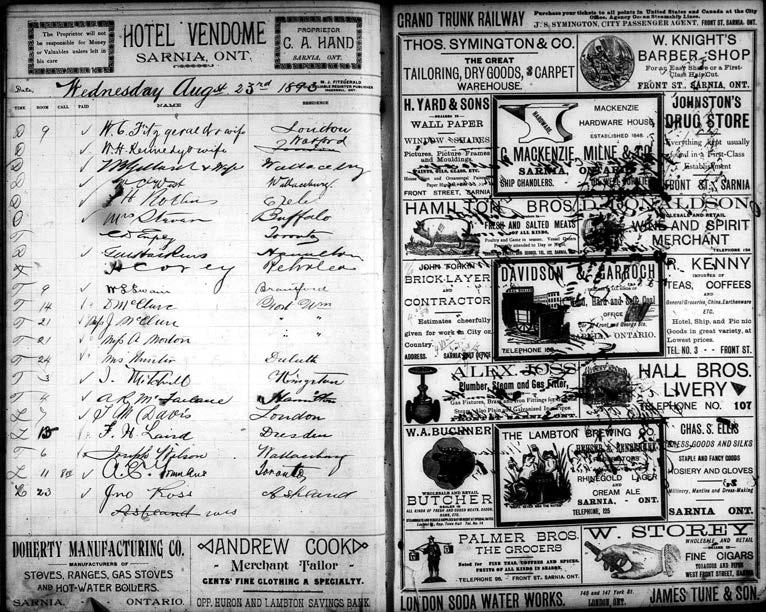 The Proprietor will not
be responsible for Money
or Valuables unless left in
his care
HOTEL VENDOME
SARNIA, ONT.
PROPRIETOR
C. A. HAND
SARNIA, ONT.
Date, Wednesday Aug 23rd 189
W. J. FITZGERALD
TIME ROOM CALL PAID NAME RESIDENCE
D 9 W. C. Fitzgerald & wife London
D W. H. Kennedy & wife Watford
D & Wife Wallaceburg
D Wallaceburg
D H Rollins
D Mrs Steven Buffalo
T Toronto
D Hamilton
Corey Petrolea
T 9 W S Swain Brantford
T 14 D McClure Fort Wm
T 21 Miss J McClure " "
T 21 Miss A Morton " "
T 24 Mrs Hunter Duluth
T 3 J. Mitchell Kingston
T 4 A R McFarlane Hamilton
L 7 J M Davis London
L 15 F. H. Laird Dresden
T 6 Joseph Wilson Wallaceburg
L 11 Toronto
L 23 Jno Ross Ashland
Ashland Wis
DOHERTY MANUFACTURING CO.
MANUFACTURERS OF
STOVES, RANGES, GAS STOVES
AND HOT-WATER BOILERS.
SARNIA, ONTARIO.
ANDREW COOK
Merchant Tailor
GENTS' FINE CLOTHING A SPECIALTY.
OPP. HURON AND LAMBTON SAVINGS BANK
GRAND TRUNK RAILWAY
Purchase your tickets to all points in United States and Canada at the City
Office. Agency for all Steamship Lines.
J. S. SYMINGTON, CITY PASSENGER AGENT, FRONT ST. SARNIA, ONT.
THOS. SYMINGTON & CO.
THE GREAT
TAILORING, DRY GOODS, & CARPET
WAREHOUSE.
W. KNIGHT'S
BARBER SHOP
For an Easy Shave or a First-
Class Hair Cut.
FRONT ST. SARNIA, ONT.
H. YARD & SONS
DEALERS IN
WALL PAPER
WINDOW SHADES
Pictures, Picture Frames
and Mouldings,
PAINTS, OILS, GLASS, ETC.
FRONT STREET, SARNIA.
MACKENZIE
HARDWARE HOUSE
ESTABLISHED 1848.
C. MACKENZIE, MILNE & CO.
SARNIA, ONTARIO
SHIP CHANDLERS.
JOHNSTON'S
DRUG STORE
Everything kept usually
found in a First-Class
Establishment
FRONT ST., SARNIA
HAMILTON BROS.
FRESH AND SALTED MEATS
OF ALL KINDS.
Poultry and Game in season.
D. DONALDSON
WHOLESALE AND RETAIL
WINE AND SPIRIT
MERCHANT
TELEPHONE
JOHN
BRICK-LAYER
AND
CONTRACTOR
Estimates cheerfully
given for work in City or
Country.
ADDRESS. SARNIA POST OFFICE
DAVIDSON & GARROCH
Hard and Soft Coal
OFFICE
Front and George Sts.
SARNIA - ONTARIO.
TELEPHONE
R. KENNY
IMPORTER OF
TEAS, COFFEES
AND
General Groceries, China, Earthenware
ETC.
Hotel, Ship, and Picnic
Goods in great variety, at
Lowest prices.
TEL. NO. 3 -- FRONT ST.
ALEX JOSS
Plumber, Steam and Gas Fitter,
HALL BROS.
LIVERY
TELEPHONE NO. 107
W. A. BUCHNER
WHOLESALE AND RETAIL
BUTCHER
DEALER IN
THE LAMBTON BREWING CO.
RHINEGOLD LAGER
AND
CREAM ALE
SARNIA. - ONT.
TELEPHONE, 125
CHAS. S. ELLIS
DRESS GOODS AND SILKS
STAPLE AND FANCY GOODS
HOSIERY AND GLOVES
Millinery, Mantles and Dress-Making
SARNIA ONT.
PALMER BROS.
THE GROCERS
Noted for FINE TEAS, COFFEES AND SPICES.
FRUITS OF ALL KINDS IN SEASON.
TELEPHONE 98. - FRONT ST. SARNIA ONT.
W. STOREY
WHOLESALE AND RETAIL
DEALER IN
FINE CIGARS
TOBACCOS AND PIPES
WEST FRONT STREET, SARNIA
LONDON SODA WATER WORKS.
145 and 147 York St.
LONDON ONT.
JAMES TUNE & SON.